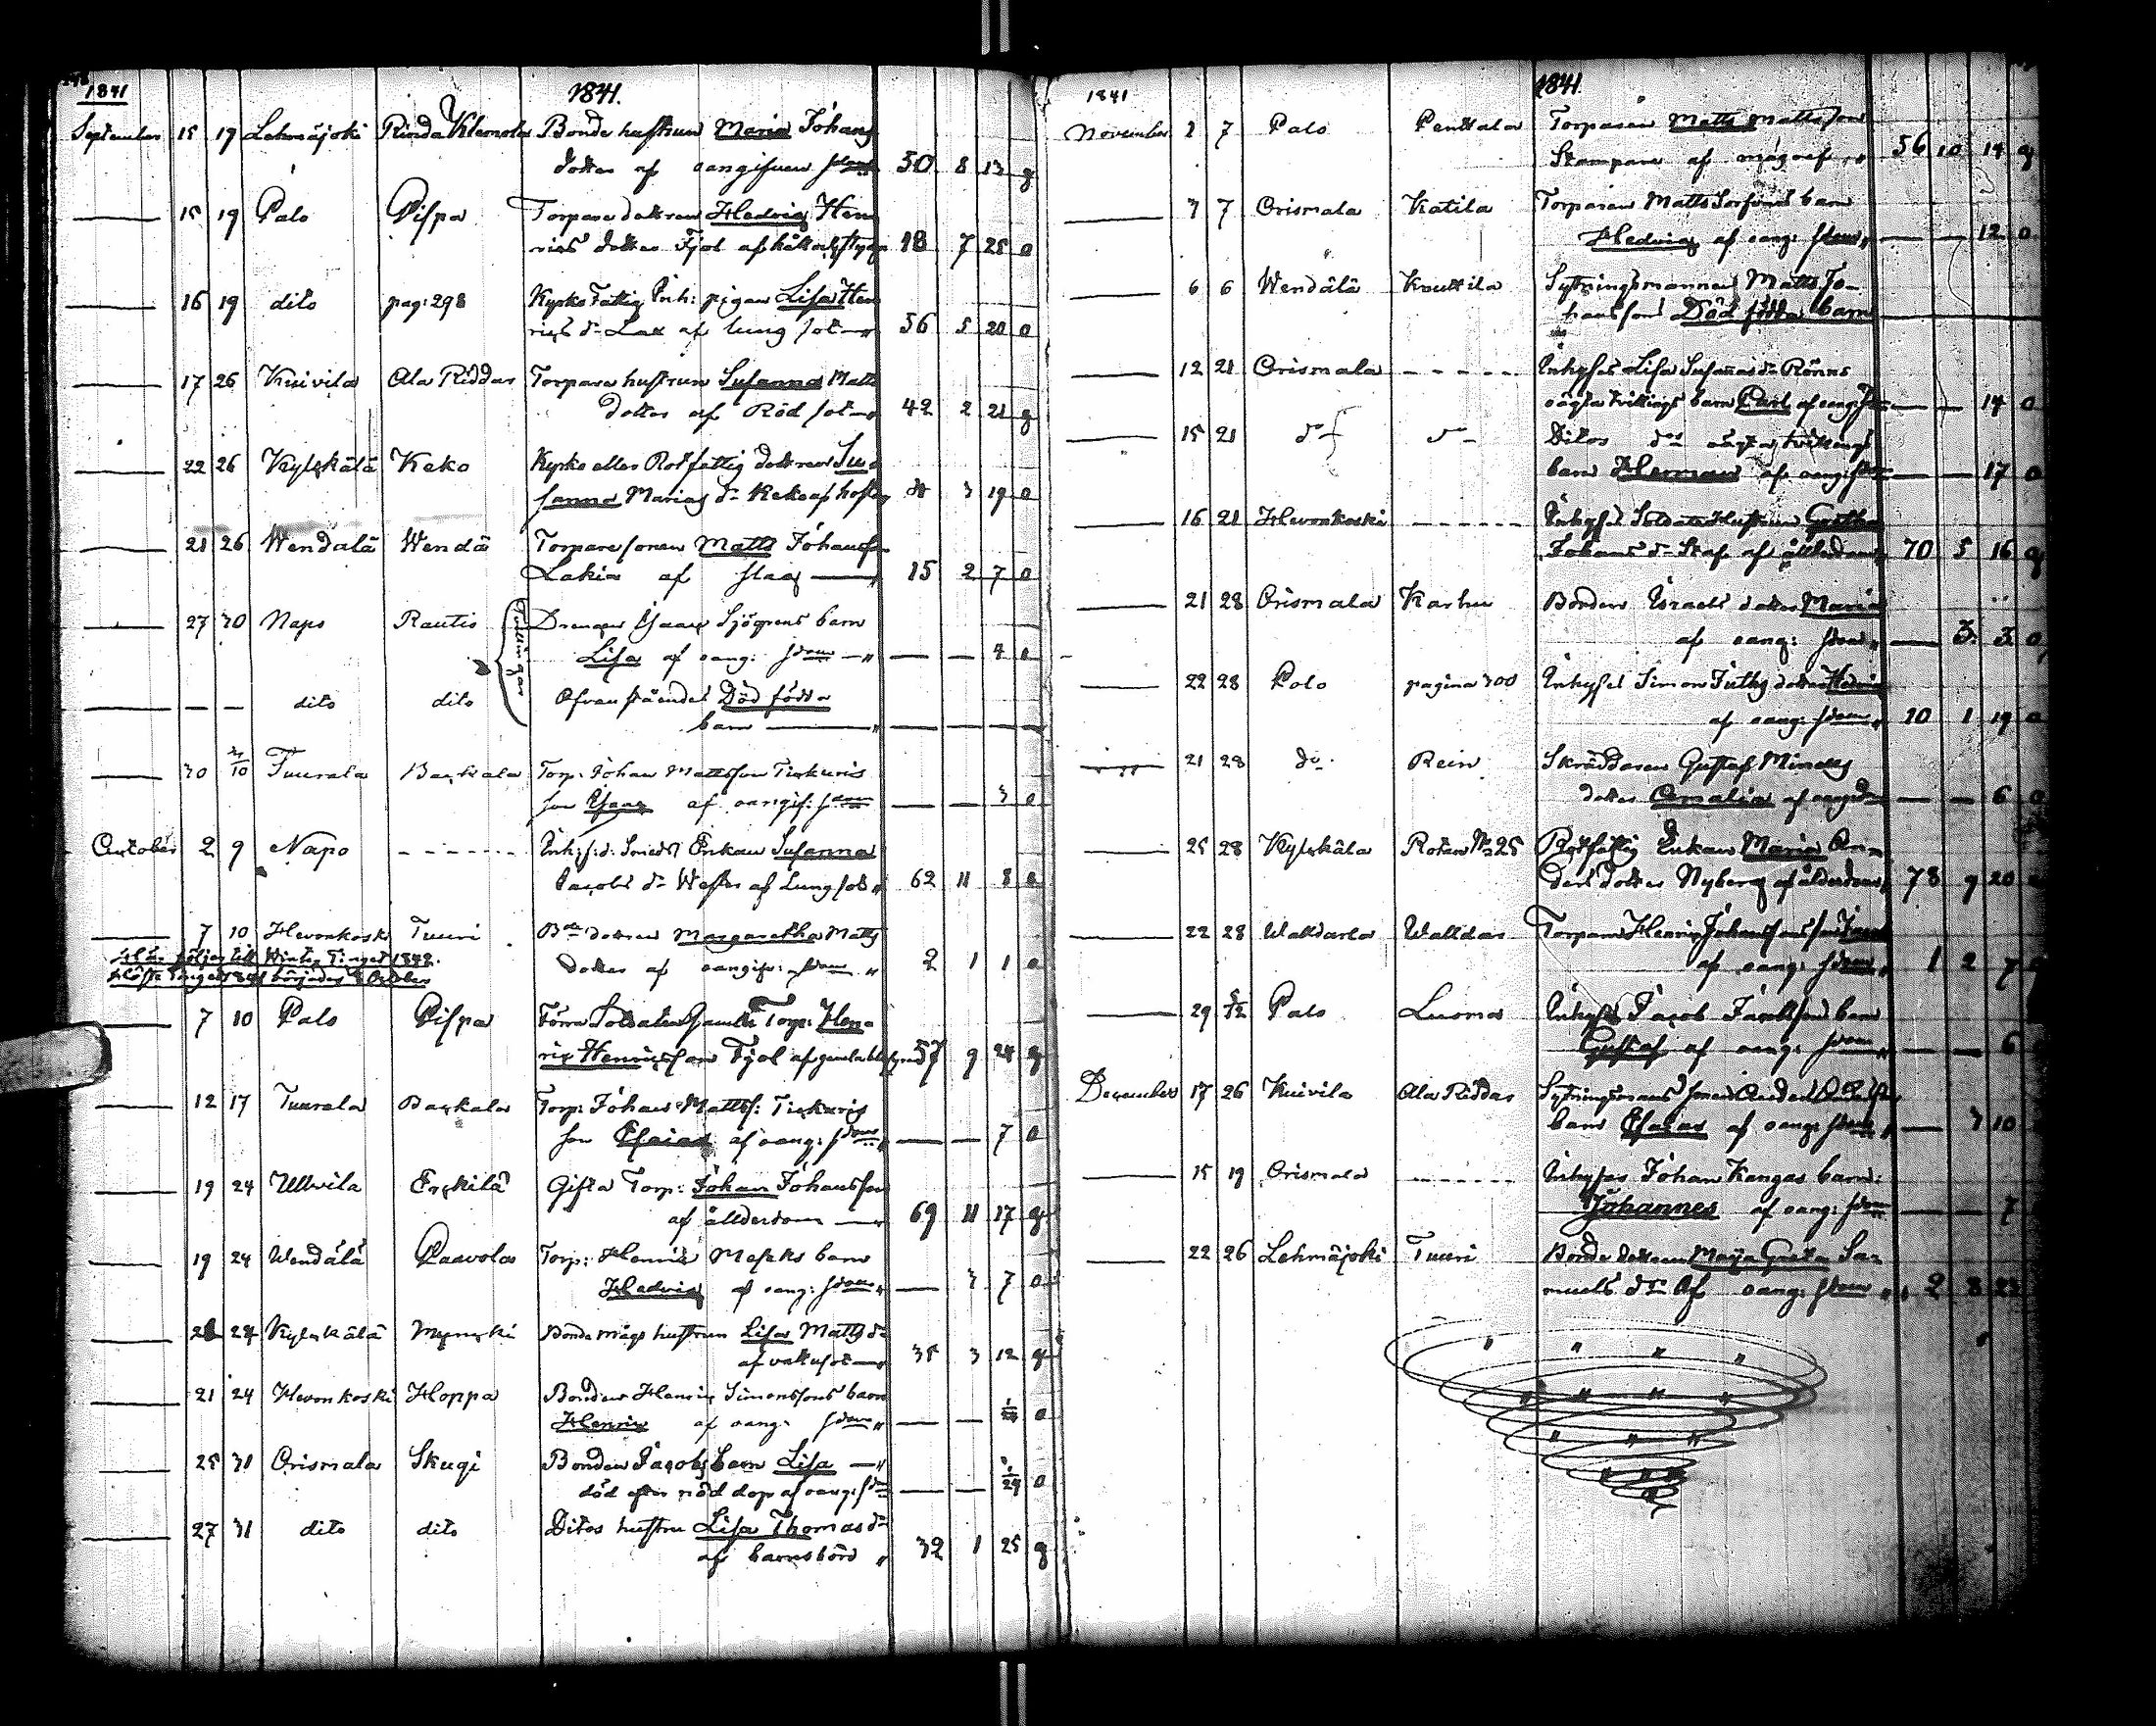 1841
1841.
September 15 19 Lehmäjoki Rinda Klemola Bonde hustrun Maria Johans
dotter af oangifven sjdom 50 8 13 g
15 19 Palo Pispa Torpare dottren Hedvig Hen
rics dotter Fjol af håll och stygn 18 7 25 o
16 19 dito pag: 298 Kyrko Fattig Inh: pigan Lisa Hen
rics dr Lax af lung sot 56 5 20 o
17 26 Kuivila Ala Riddar Torpare hustrun Susanna Matts
dotter af Röd sot 42 2 21 g
22 26 Kylkälä Keko Kyrko eller Rotfattig dottren Su
sanna Marias dr Keko af hosta 3 19 o
21 26 Wendälä Wendä Torpare sonen Matts Johansson
Lakia af slag 15 2 7 o
27 30 Napo Rautio Drengen Isaac Sjögrens barn
Lisa af oang: sjdom 4 o
Tvillingar
dito dito Ofvanstående Död födda
barn
30 2/10 Tuurala Backala Torp: Johan Mattsson Tickuris
son Isaac af oangif: sjdom 3 o
October 2 9 Napo Inh: f:d: Smeds Enkan Susanna
Jacobs dr Wester af Lungsot 62 11 8 e
7 10 Hevonkoski Tuuri Bde dottren Margaretha Matts
dotter af oangifv: sjdom 2 1 1 o
Här följer till Winter Tinget 1842.
Höste Tinget 1841 börjades 8 October
7 10 Palo Pispa Förra Soldaten Gamla Torp: Hen-
ric Henricsson Fjol af gamla bly 57 9 24 g
12 17 Tuurala Backala Torp: Johan Mattss: Tickuris
son Esaias af oang: sjdom 7 o
19 24 Ullvila Erckilä Gifta Torp: Johan Johansson
af ållderdom 69 11 17 g
19 24 Wendälä Paavola Torp: Henric barn
Hedvig af oang: sjdom 3 7 o
24 Kylkälä Myncki Bonde mågs hustrun Lisa Matts dr
af vattusot 35 3 12 g
21 24 Hevonkoski Hoppa Bonden Henric Simonssons barn
Henric af oang: sjdom o
25 31 Orismala Skugi Bonden Jacobs barn Lisa
död efter nöd dop af oang: sjdom 1/24 o
27 31 dito dito Ditos hustru Lisa Thomas dr
af barnsbörd 32 1 25 g
1841
1841
November 2 7 Palo Penttala Torparen Matts Mattsson
Stampare af mag 56 10 14 g
3 7 Orismala Katila Torparen Matts barn
Hedvig af oang: sjdom 12 o
6 6 Wendälä Knuttila Sytningsmannen Matts Jo-
hanssons Död födda barn
12 21 Orismala Inhyses Lisa Susannas dr Rönns
oägta tvillings barn Carl af oang: sjdom 14 o
15 21 do do Ditos dos oägta tvillings
barn Herman af oang: sjdom 17 o
16 21 Hevonkoski Inhyses Soldats Hustrun Gretha
Johans dr Staf af ållderdom 70 5 16 g
21 28 Orismala Karhu Bonden Israels dotter Maria
af oang: sjdom 3 3 o
22 28 Palo pagina 300 Inhyses Simon dotter Hedvig
af oang: sjdom 10 1 19 o
21 28 do Rein Skräddaren Gustaf
dotter Amalia af oang: sjdom 6 o
25 28 Kylkälä Roten No 25 Rotfattig Enkan Maria An-
ders dotter Nyberg af ålderdom 78 9 20
22 28 Walldarla Walldar Torparen Henric Johanssons son
af oang: sjdom 1 2 7
29 5/12 Palo Luoma Inhyses Jacob Jacobssons barn
Gustaf af oang: sjdom 6
December 17 26 Kuivila Ala Riddar Sytningsmans sonen
barn Esaias af oang: sjdom 3 10
15 19 Orismala Inhyses Johan Kangas barn:
Johannes af oang: sjdom 7
22 26 Lehmäjoki Tuuri Bonde dottren Maja Greta Sa-
muels dr Af oang: sjdom 2 8 23